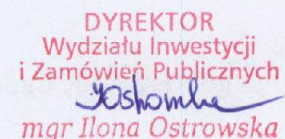 DYREKTOR
Wydziału Inwestycji
i Zamówień Publicznych
mgr Ilona Ostrowska